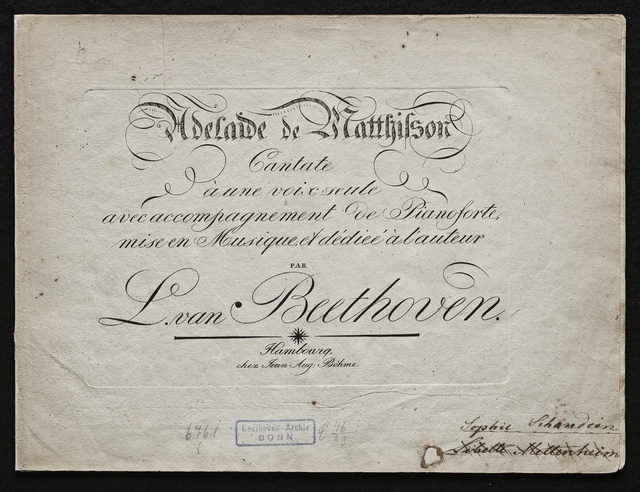 Adelaide de Matthisson
Cantate
à une voix seule
avec accompagnement de Pianoforte,
mise en Musique, et dédieé à l'auteur
PAR
L. van Beethoven.
Hambourg.
chez Jean Aug. Böhme.
6761
Beethoven-Archiv
BONN
Sophie Schandein